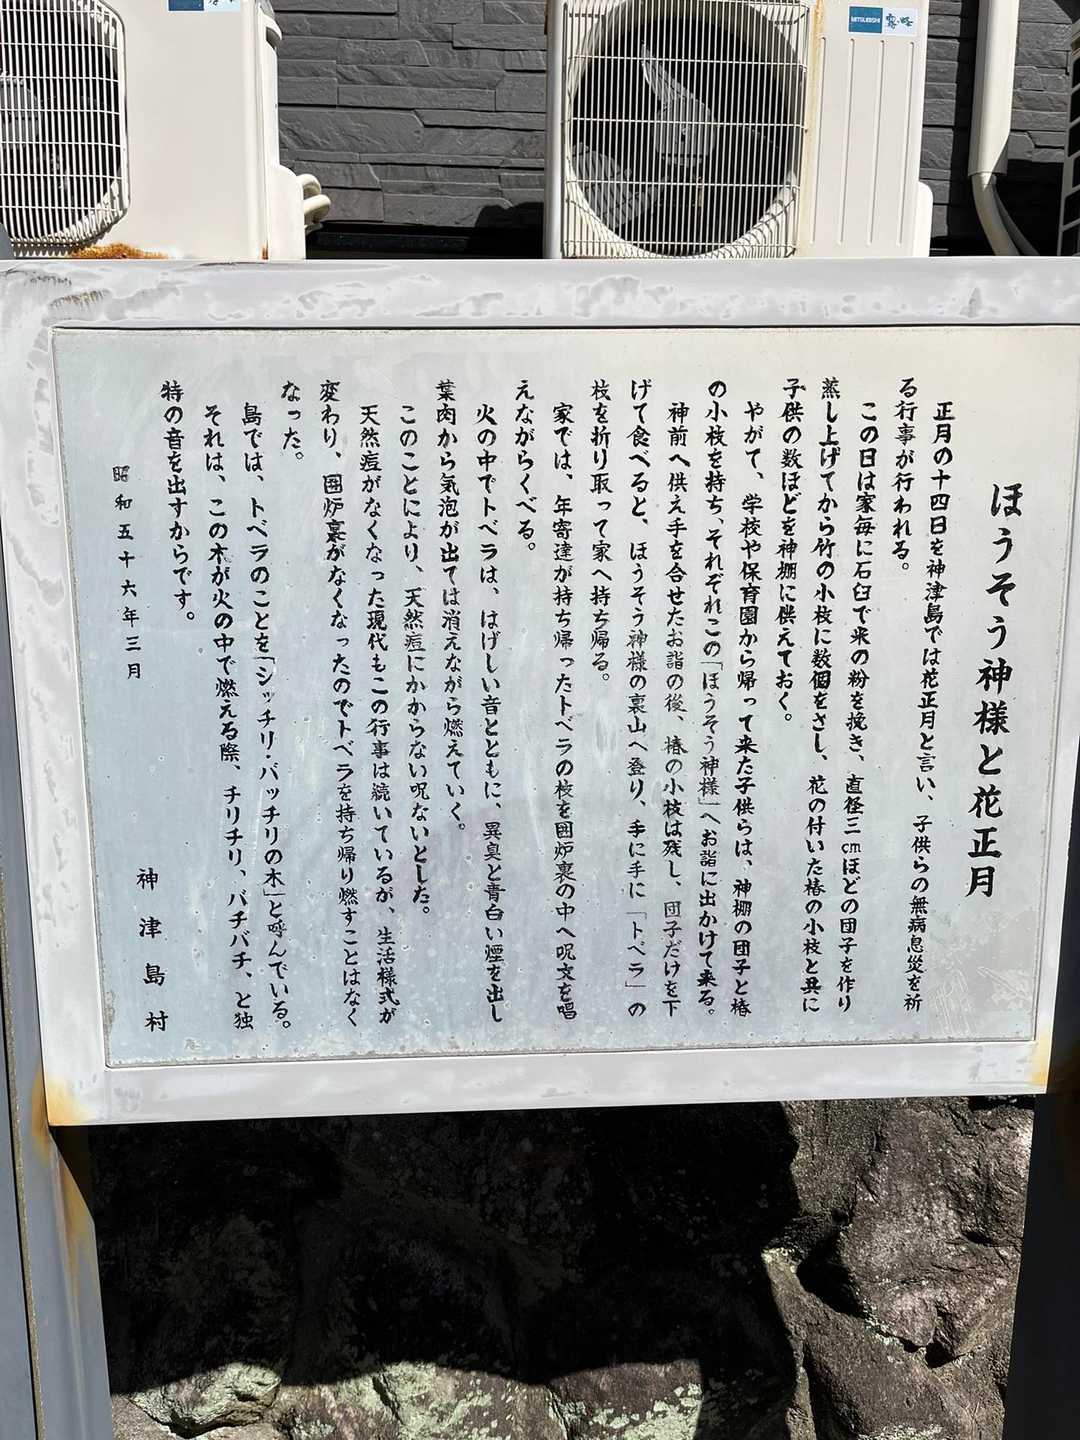 ほうそう神様と花正月
正月の十四日を神津島では花正月と言い、子供らの無病息災を祈
る行事が行われる。
この日は家毎に石臼で米の粉を挽き、直径三cmほどの団子を作り
蒸し上げてから竹の小枝に数個をさし、花の付いた椿の小枝と共に
子供の数ほどを神棚に供えておく。
やがて、学校や保育園から帰って来た子供らは、神棚の団子と椿
の小枝を持ち、それぞれこの「ほうそう神様」へお詣に出かけて来る。
神前へ供え手を合せたお詣の後、椿の小枝は残し、団子だけを下
げて食べると、ほうそう神様の裏山へ登り、手に手に「トベラ」の
枝を折り取って家へ持ち帰る。
家では、年寄達が持ち帰ったトベラの枝を囲炉裏の中へ呪文を唱
えながらくべる。
火の中でトベラは、はげしい音とともに、異臭と青白い煙を出し
葉肉から気泡が出ては消えながら燃えていく。
このことにより、天然痘にかからない呪ないとした。
天然痘がなくなった現代もこの行事は続いているが、生活様式が
変わり、囲炉裏がなくなったのでトベラを持ち帰り燃すことはなく
なった。
島では、トベラのことを「シッチリ・バッチリの木」と呼んでいる。
それは、この木が火の中で燃える際、チリチリ、バチバチ、と独
特の音を出すからです。
昭和五十六年三月
神津島村
MITSUBISHI
霧ヶ峰